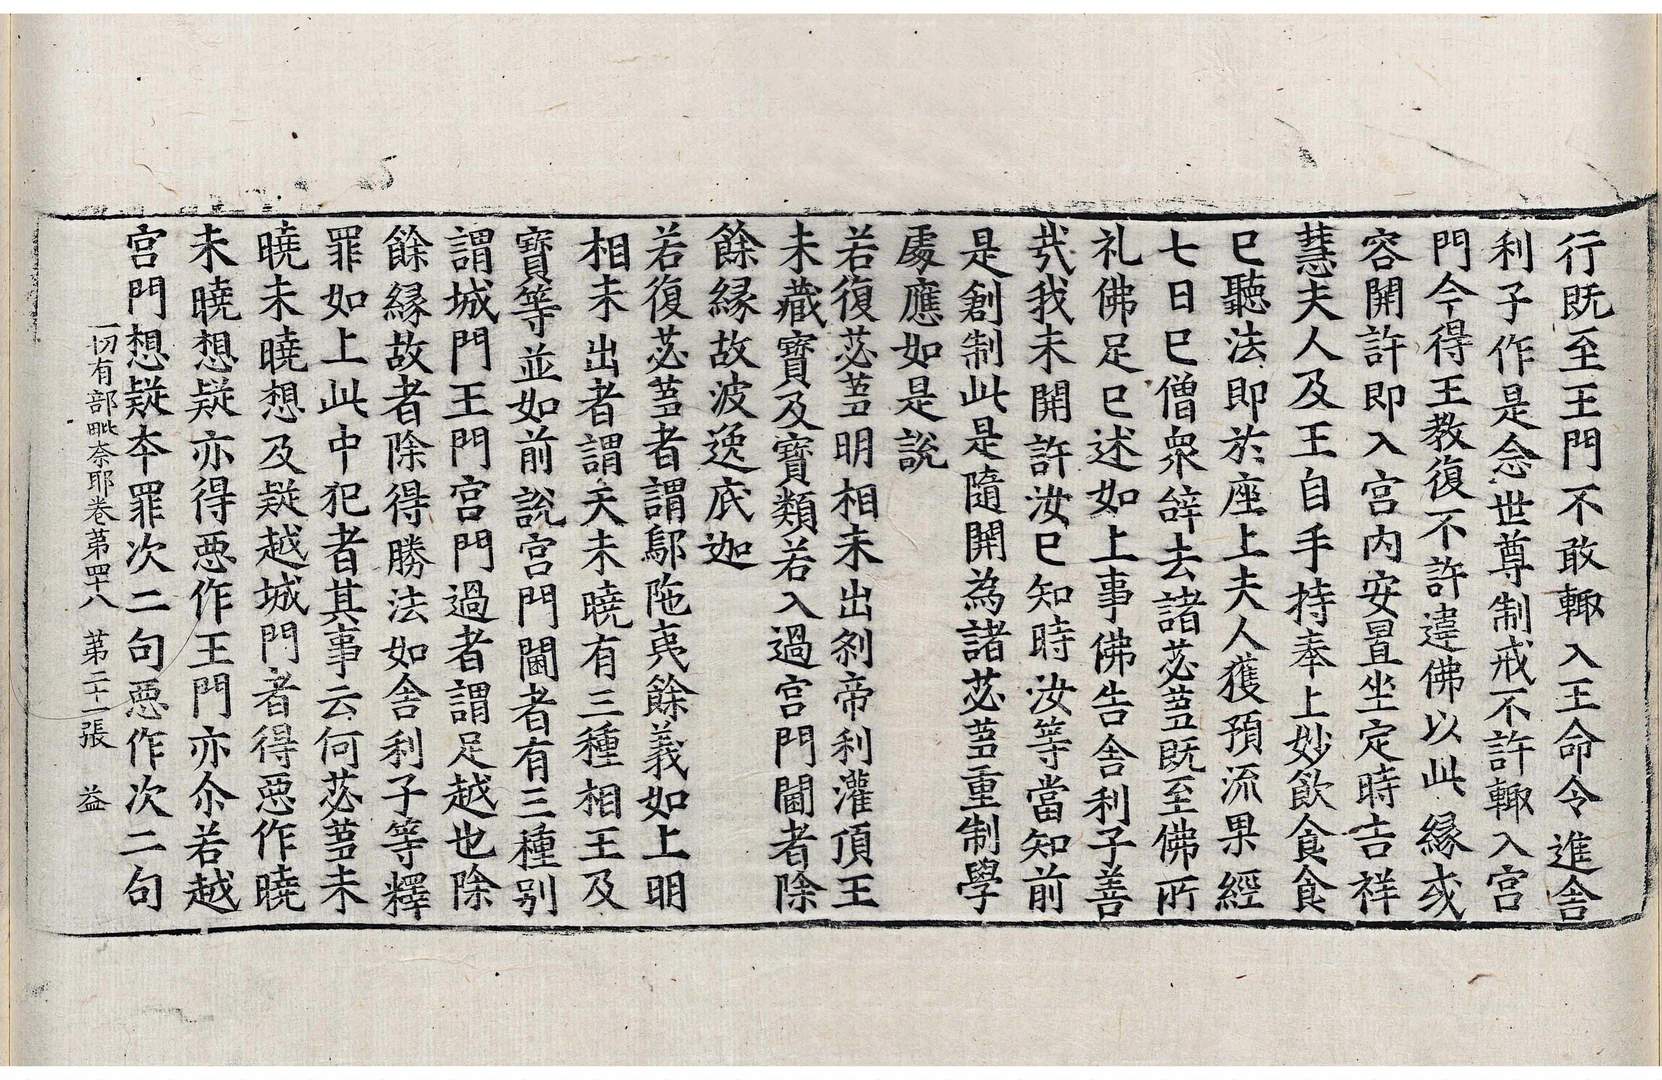 行旣至王門不敢輙入王命令進舍
利子作是念世尊制戒不許輙入宫
門今得王教復不許違佛以此縁或
容開許即入宫内安置坐定時吉祥
慧夫人及王自手持奉上妙飲食食
已聽法即於座上夫人獲預流果經
七日已僧衆辝去諸苾蒭旣至佛所
礼佛足已述如上事佛告舎利子善
㢤我未開許汝已知時汝等當知前
是創制此是隨開為諸苾蒭重制學
處應如是説
若復苾蒭明相未出刹帝利灌頂王
未藏寶及寶類若入過宫門閫者除
餘縁故波逸底迦
若復苾蒭者謂鄔陁夷餘義如上明
相未出者謂天未曉有三種相王及
寶等並如前説宫門閫者有三種别
謂城門王門宫門過者謂足越也除
餘縁故者除得勝法如舍利子等釋
罪如上此中犯者其事云何苾蒭未
曉未曉想及疑越城門者得惡作曉
未曉想疑亦得惡作王門亦尒若越
宫門想疑夲罪次二句惡作次二句
一切有部毗奈耶卷第四十八　第二十一張　益